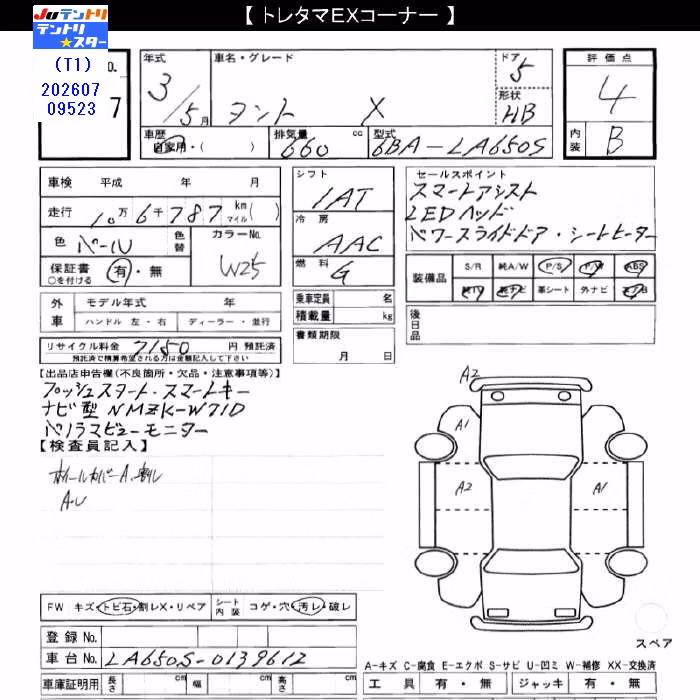 【 トレタマEXコーナー 】
JUテントリ
テントリ★スター
(T1)
202607
09523
O.
7
年式
3/5月
車名・グレード
タント X
ドア
5
形状
HB
評価点
4
内装
B
車歴
自家用・( )
排気量
660 cc
型式
6BA-LA650S
車検 平成 年 月
走行 10万6千787 km マイル( )
色 パール
色替
カラーNo.
W25
保証書 有・無
○を付ける
シフト
IAT
冷房
AAC
燃料
G
セールスポイント
スマートアシスト
LEDヘッド
パワースライドドア・シートヒーター
装備品
S/R 純A/W P/S P/W ABS
純TV 純ナビ 革シート 外ナビ エアB
外車
モデル年式 年
ハンドル 左・右 ディーラー・並行
乗車定員 名
積載量 kg
後日品
リサイクル料金 7180 円 預託済
預託済で精算希望される方は金額記入して下さい
書類期限
月 日
【出品店申告欄(不良箇所・欠品・注意事項等)】
プッシュスタート・スマートキー
ナビ型 NMZK-W71D
パノラマビューモニター
【検査員記入】
ホイールカバーA、割レ
A・U
A2
A1
A2
A1
スペア
FW キズ・トビ石・割レX・リペア
シート内装 コゲ・穴・汚レ・破レ
登録 No.
車台 No. LA650S-0139612
車庫証明用 長さ cm 幅 cm 高さ cm
A-キズ C-腐食 E-エクボ S-サビ U-凹ミ W-補修 XX-交換済
工具 有・無 ジャッキ 有・無